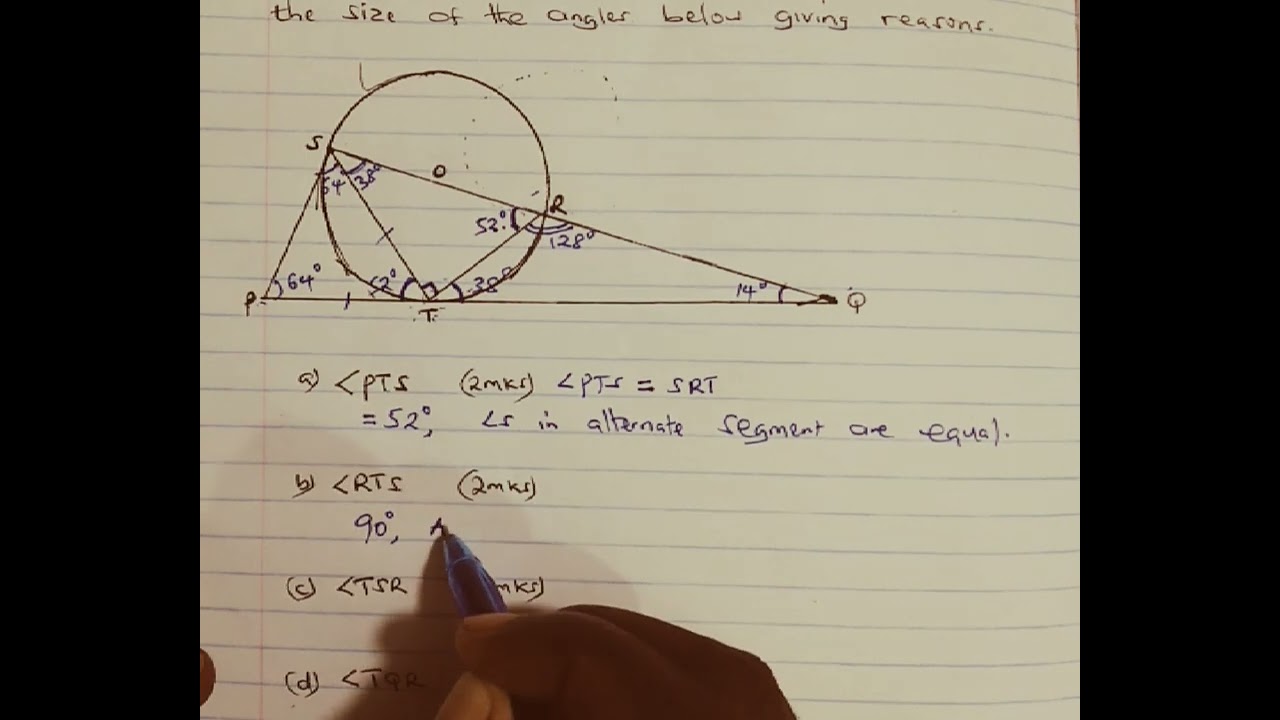 the size of the angles below giving reasons.
S
54 38°
O
R
52°
128°
P
64°
52°
38°
T
14°
Q
a) <PTS (2mks) <PTS = SRT
= 52°, <s in alternate segment are equal.
b) <RTS (2mks)
90°, A
(c) <TSR mks)
(d) <TQR